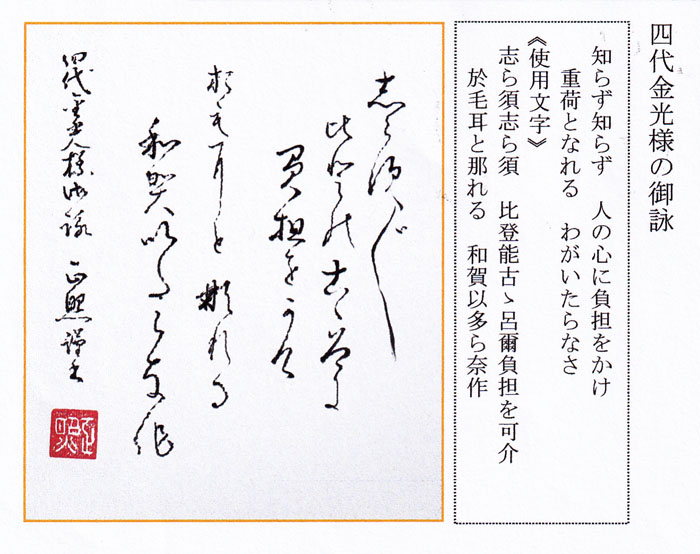 四代金光様の御詠
知らず知らず　人の心に負担をかけ
重荷となれる　わがいたらなさ
《使用文字》
志ら須志ら須　比登能古ゝ呂爾負担を可介
於毛耳と那れる　和賀以多ら奈作
志ら須〱
比登能古ゝ呂爾
負担を可介
於毛耳と那れる
和賀以多ら奈作
四代金光様御詠　謹書